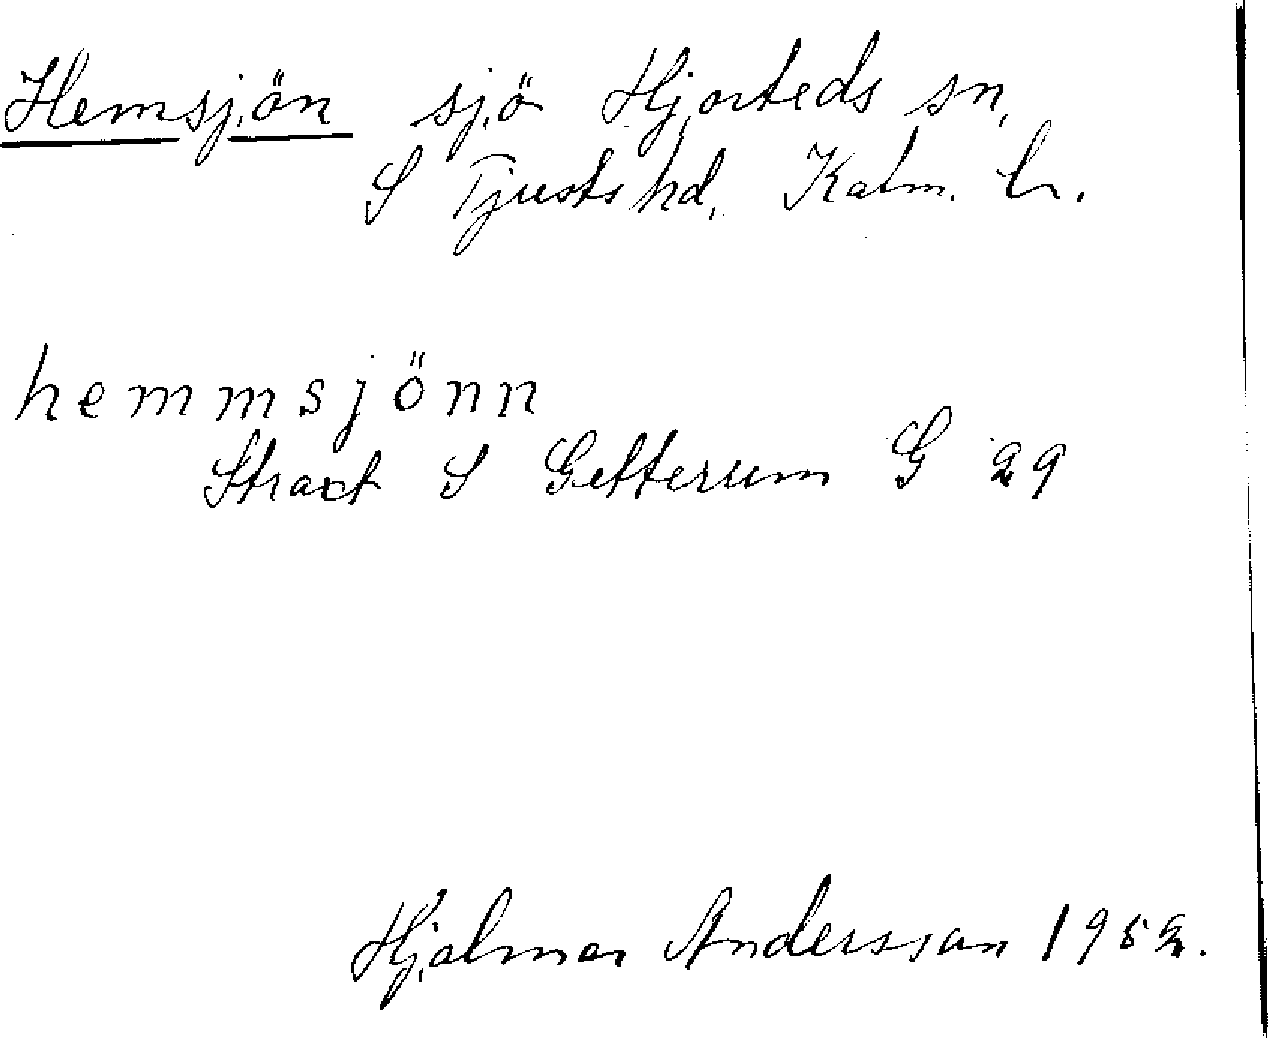 Hemsjön sjö Hjorteds sn,
S Tjusts hd, Kalm. l.
hemmsjönn
Straxt S Getterum G 29
Hjalmar Andersson 1952.